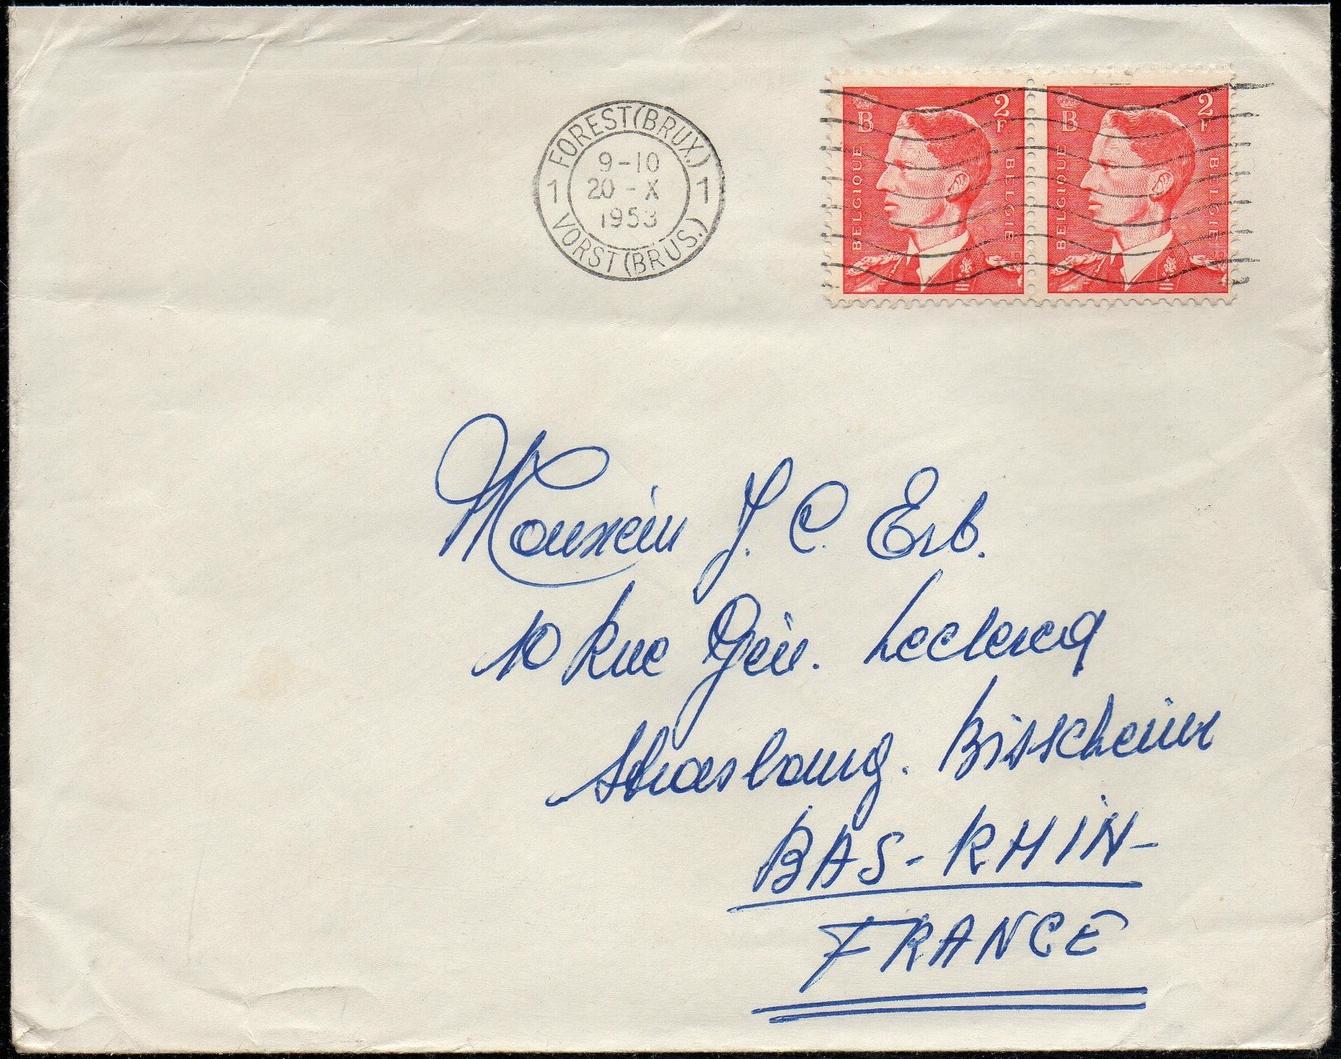 FOREST (BRUX.)
9-10
20-X
1953
1 1
VORST (BRUS.)
B 2 F
BELGIQUE BELGIE
B 2 F
BELGIQUE BELGIE
Monsieur J. C. Erb.
10 Rue Gén. Leclercq
Strasbourg. Bisscheim
BAS-RHIN-
FRANCE